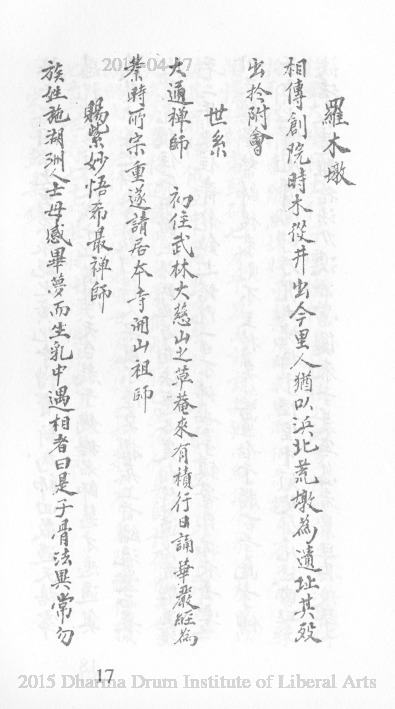 羅木墩
相傳創院時木從井出今里人猶以浜北荒墩為遺址其殆
出於附會
世系
大通禅師　初住武林大慈山之草菴來有積行日誦華嚴經為
業時所宗重遂請居本寺開山祖師
賜紫妙悟希最禅師
族姓施湖洲人士母感畢夢而生乳中遇相者曰是子骨法異常勿
17
2015 Dharma Drum Institute of Liberal Arts